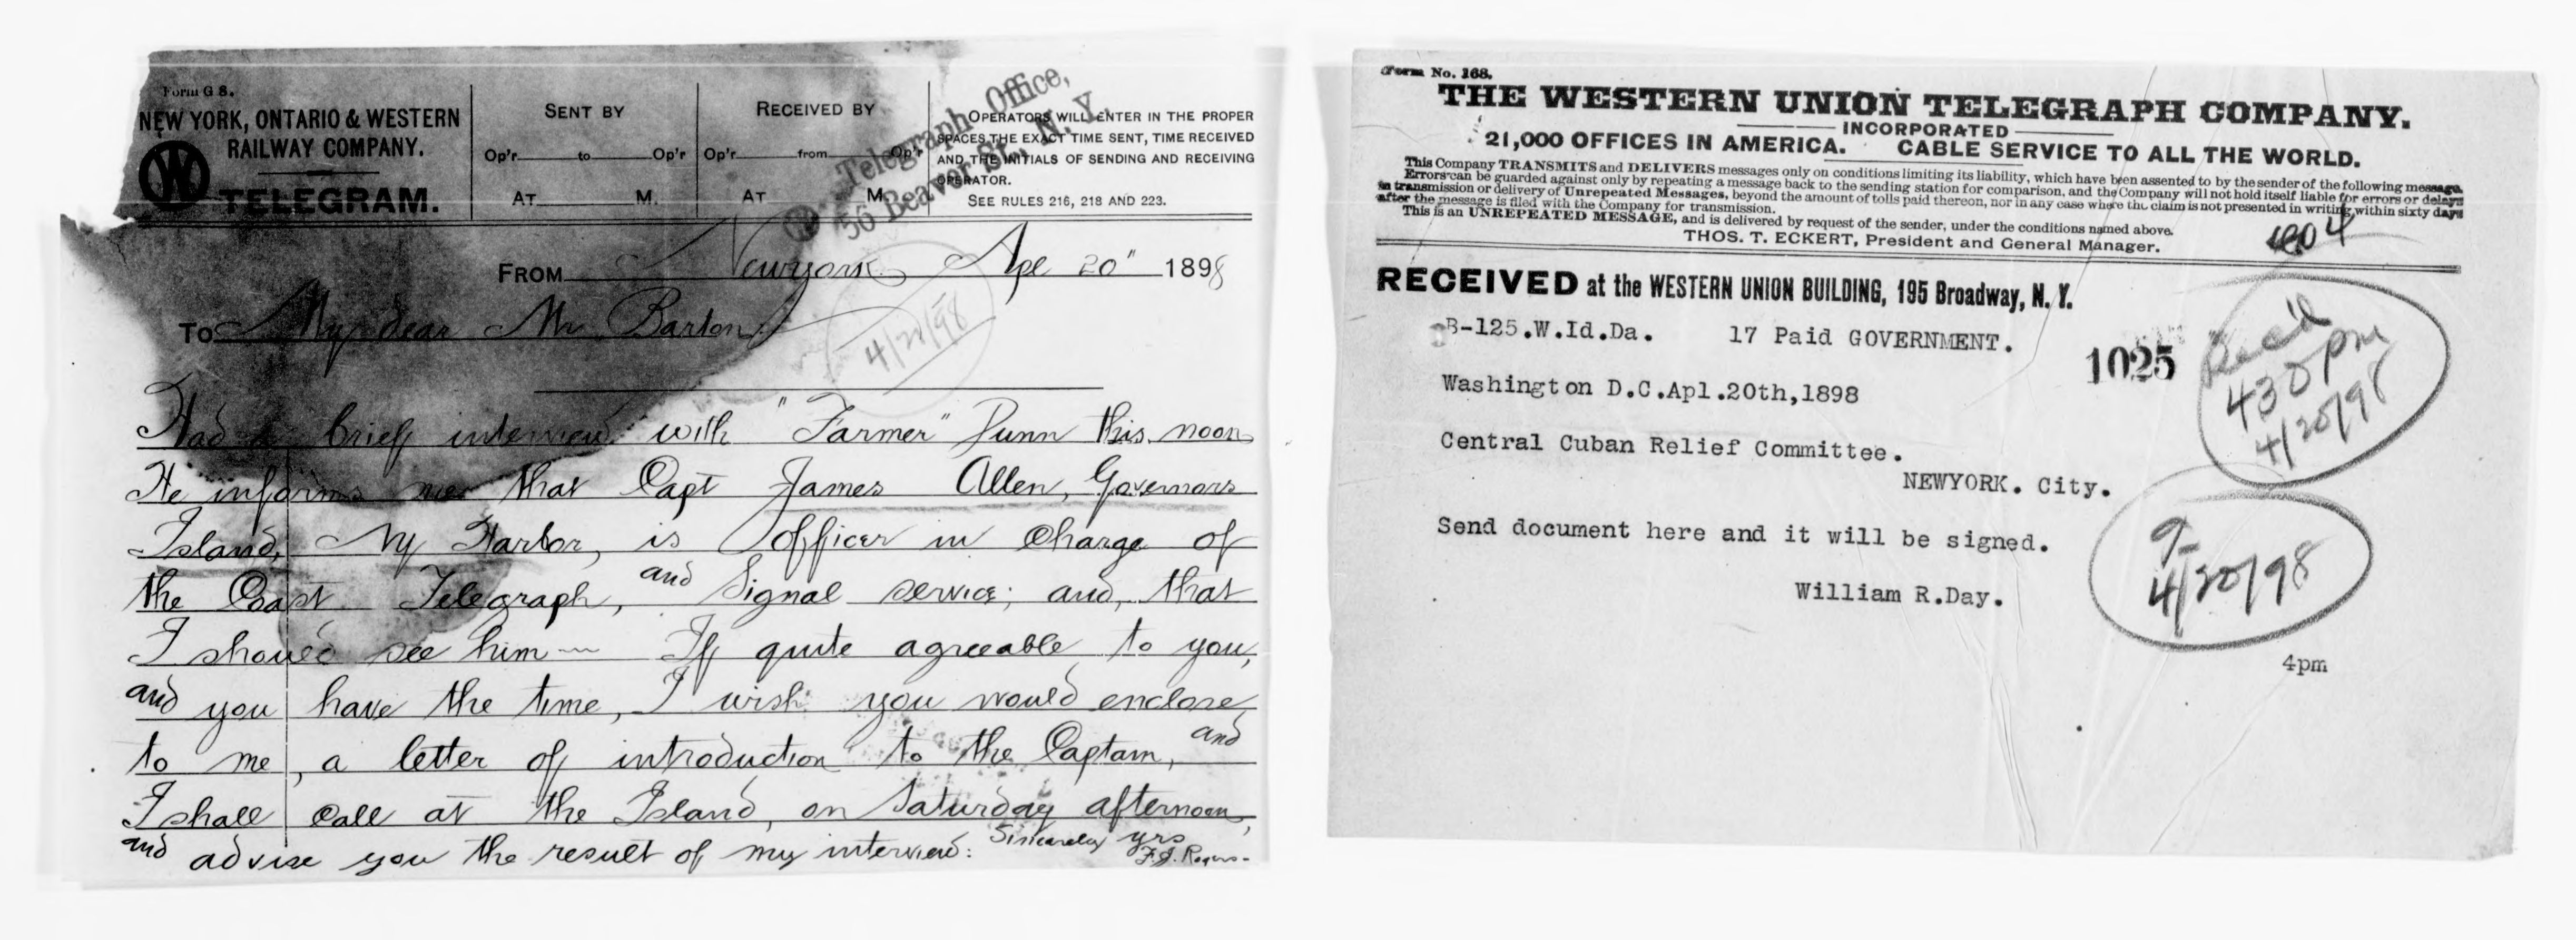 Form G 8.
NEW YORK, ONTARIO & WESTERN
RAILWAY COMPANY.
W
TELEGRAM.
SENT BY
Op'r to Op'r
AT M.
RECEIVED BY
Op'r from Op'r
AT M.
OPERATORS WILL ENTER IN THE PROPER
SPACES THE EXACT TIME SENT, TIME RECEIVED
AND THE INITIALS OF SENDING AND RECEIVING
OPERATOR.
SEE RULES 216, 218 AND 223.
Telegraph Office,
56 Beaver St., N. Y.
FROM Newyork Apl 20" 1898
To My dear Mr Barton
4/20/98
Had a brief interview with "Farmer" Dunn this noon
He informs me that Capt James Allen, Governors
Island, Ny Harbor, is Officer in Charge of
the Coast Telegraph, and Signal service; and, that
I should see him — If quite agreeable to you,
and you have the time, I wish you would enclose
to me, a letter of introduction to the Captain, and
I shall Call at the Island, on Saturday afternoon,
and advise you the result of my interview: Sincerely yrs
F.J. Rogers-
Form No. 168.
THE WESTERN UNION TELEGRAPH COMPANY.
INCORPORATED
21,000 OFFICES IN AMERICA. CABLE SERVICE TO ALL THE WORLD.
This Company TRANSMITS and DELIVERS messages only on conditions limiting its liability, which have been assented to by the sender of the following message.
Errors can be guarded against only by repeating a message back to the sending station for comparison, and the Company will not hold itself liable for errors or delays
in transmission or delivery of Unrepeated Messages, beyond the amount of tolls paid thereon, nor in any case where the claim is not presented in writing within sixty days
after the message is filed with the Company for transmission.
This is an UNREPEATED MESSAGE, and is delivered by request of the sender, under the conditions named above.
THOS. T. ECKERT, President and General Manager.
RECEIVED at the WESTERN UNION BUILDING, 195 Broadway, N. Y.
B-125.W.Id.Da. 17 Paid GOVERNMENT.
1025
Rec'd
430 pm
4/20/98
Washington D.C.Apl.20th,1898
Central Cuban Relief Committee.
NEWYORK. City.
Send document here and it will be signed.
William R.Day.
4/20/98
4pm